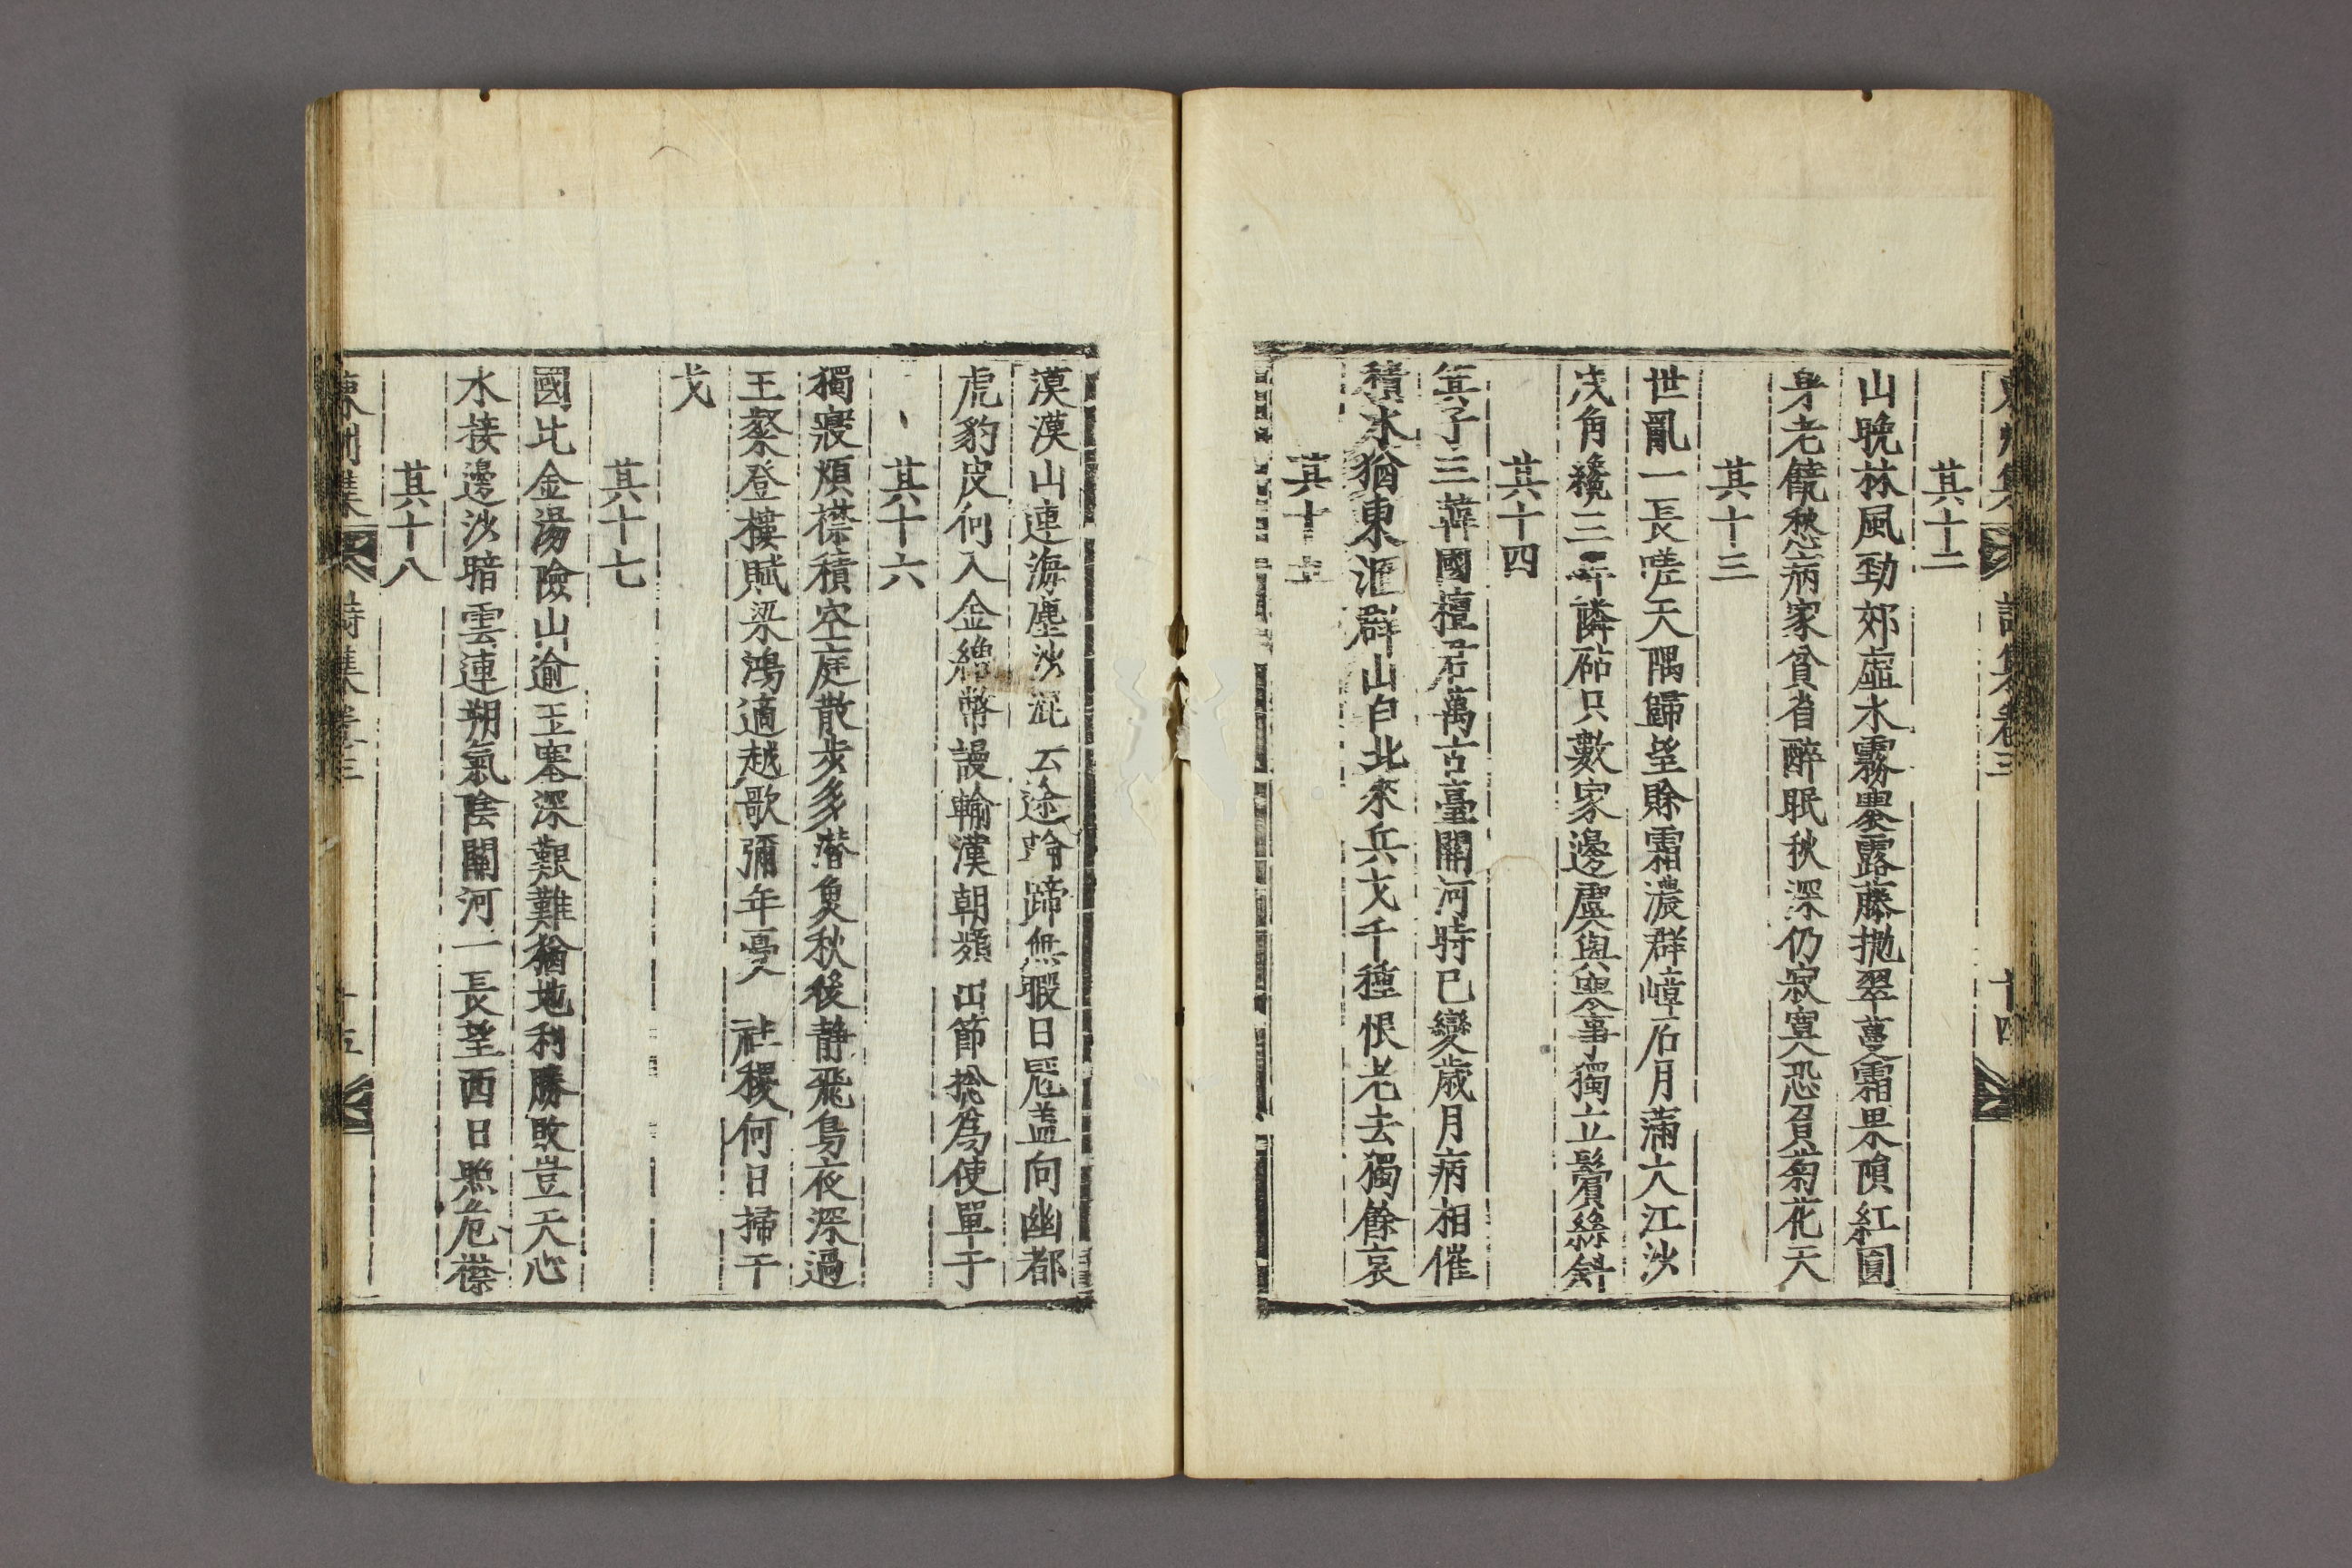 集 詩集卷三 十四
其十二
山晩林風勁郊虛水霧興露藤抛翠蔓霜果隕紅圓
身老饒愁病家貧省醉眠秋深仍寂寞恐負菊花天
其十三
世亂一長嗟天隅歸望賖霜濃群嶂石月滿大江沙
戍角纔三弄隣砧只數家邊虞與寒事獨立鬢絲斜
其十四
箕子三韓國檀君萬古臺關河時已變歲月病相催
積水猶東滙群山自北來兵戈千種恨老去獨餘哀
其十五
漠漠山連海塵沙混去途輪蹄無暇日冠盖向幽都
虎豹皮何入金繒幣謾輸漢朝頻出節捴爲使單于
其十六
獨寢煩襟積空庭散步多潛魚秋後静飛鳥夜深過
王粲登樓賦梁鴻適越歌彌年憂社稷何日掃干
戈
其十七
國比金湯險山逾玉塞深艱難猶地利勝敗豈天心
水接邊沙暗雲連朔氣陰關河一長望西日照危襟
其十八
東州集 詩集卷三 十五